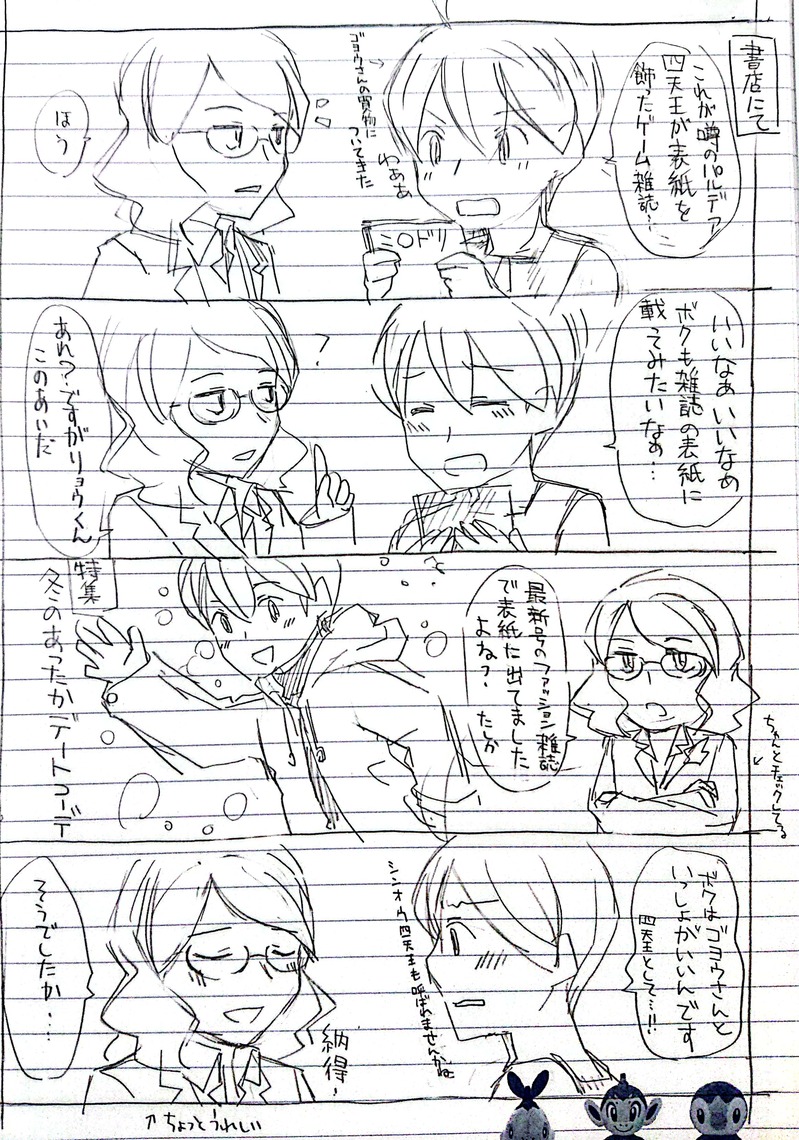 書店にて
これが噂のパルデア
四天王が表紙を
飾ったゲーム雑誌!
わぁぁ
ミ○ドリ
→ゴヨウさんの買物に
ついてきた
ほう
いいなぁいいなぁ
ボクも雑誌の表紙に
載ってみたいなぁ…
?
あれ?ですがリョウくん
このあいだ
ちゃんとチェックしてる
最新号のファッション雑誌
で表紙に出てました
よね?たしか
特集
冬のあったかデートコーデ
ボクはゴヨウさんと
いっしょがいいんです
四天王として…!!
シンオウ四天王も呼ばれませんかね
納得!
そうでしたか…
↑ちょっとうれしい